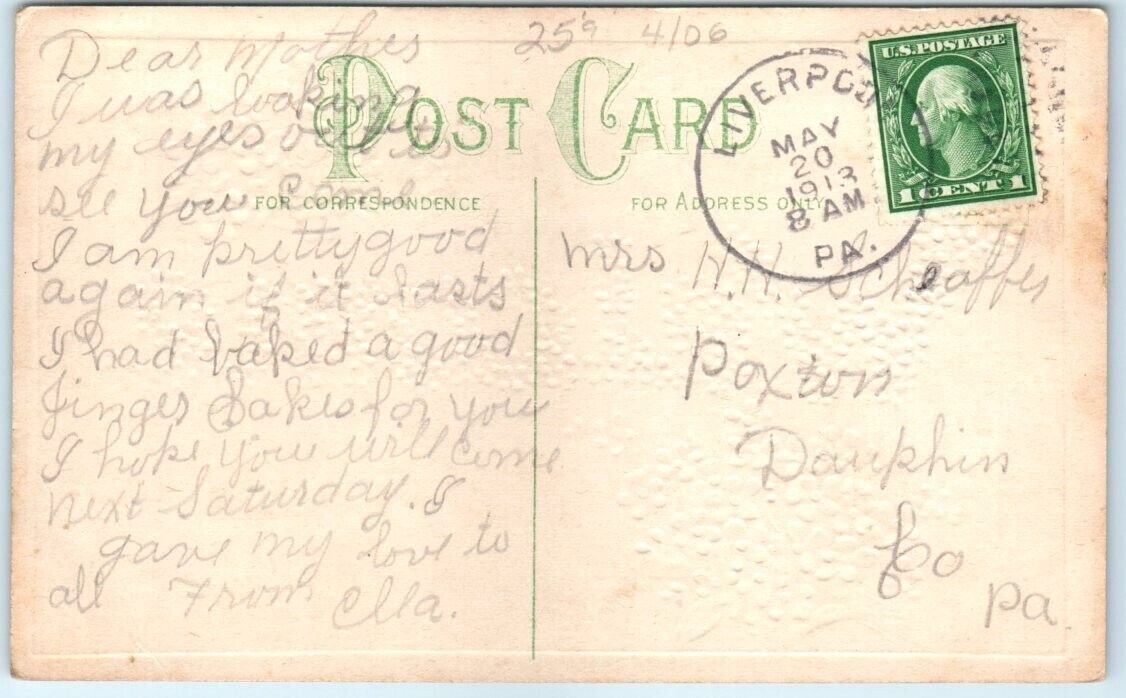 259 4/06
POST CARD
FOR CORRESPONDENCE
FOR ADDRESS ONLY
U.S. POSTAGE
1 CENT 1
LIVERPOOL
MAY
20
1913
8 AM
PA.
Dear Mother
I was looking
my eyes out to
see you come
I am pretty good
again if it lasts
I had baked a good
Jinger Cakes for you
I hope you will come
next Saturday. I
gave my love to
all From Ella.
Mrs H.H. Scheaffer
Paxton
Dauphin
Co
Pa